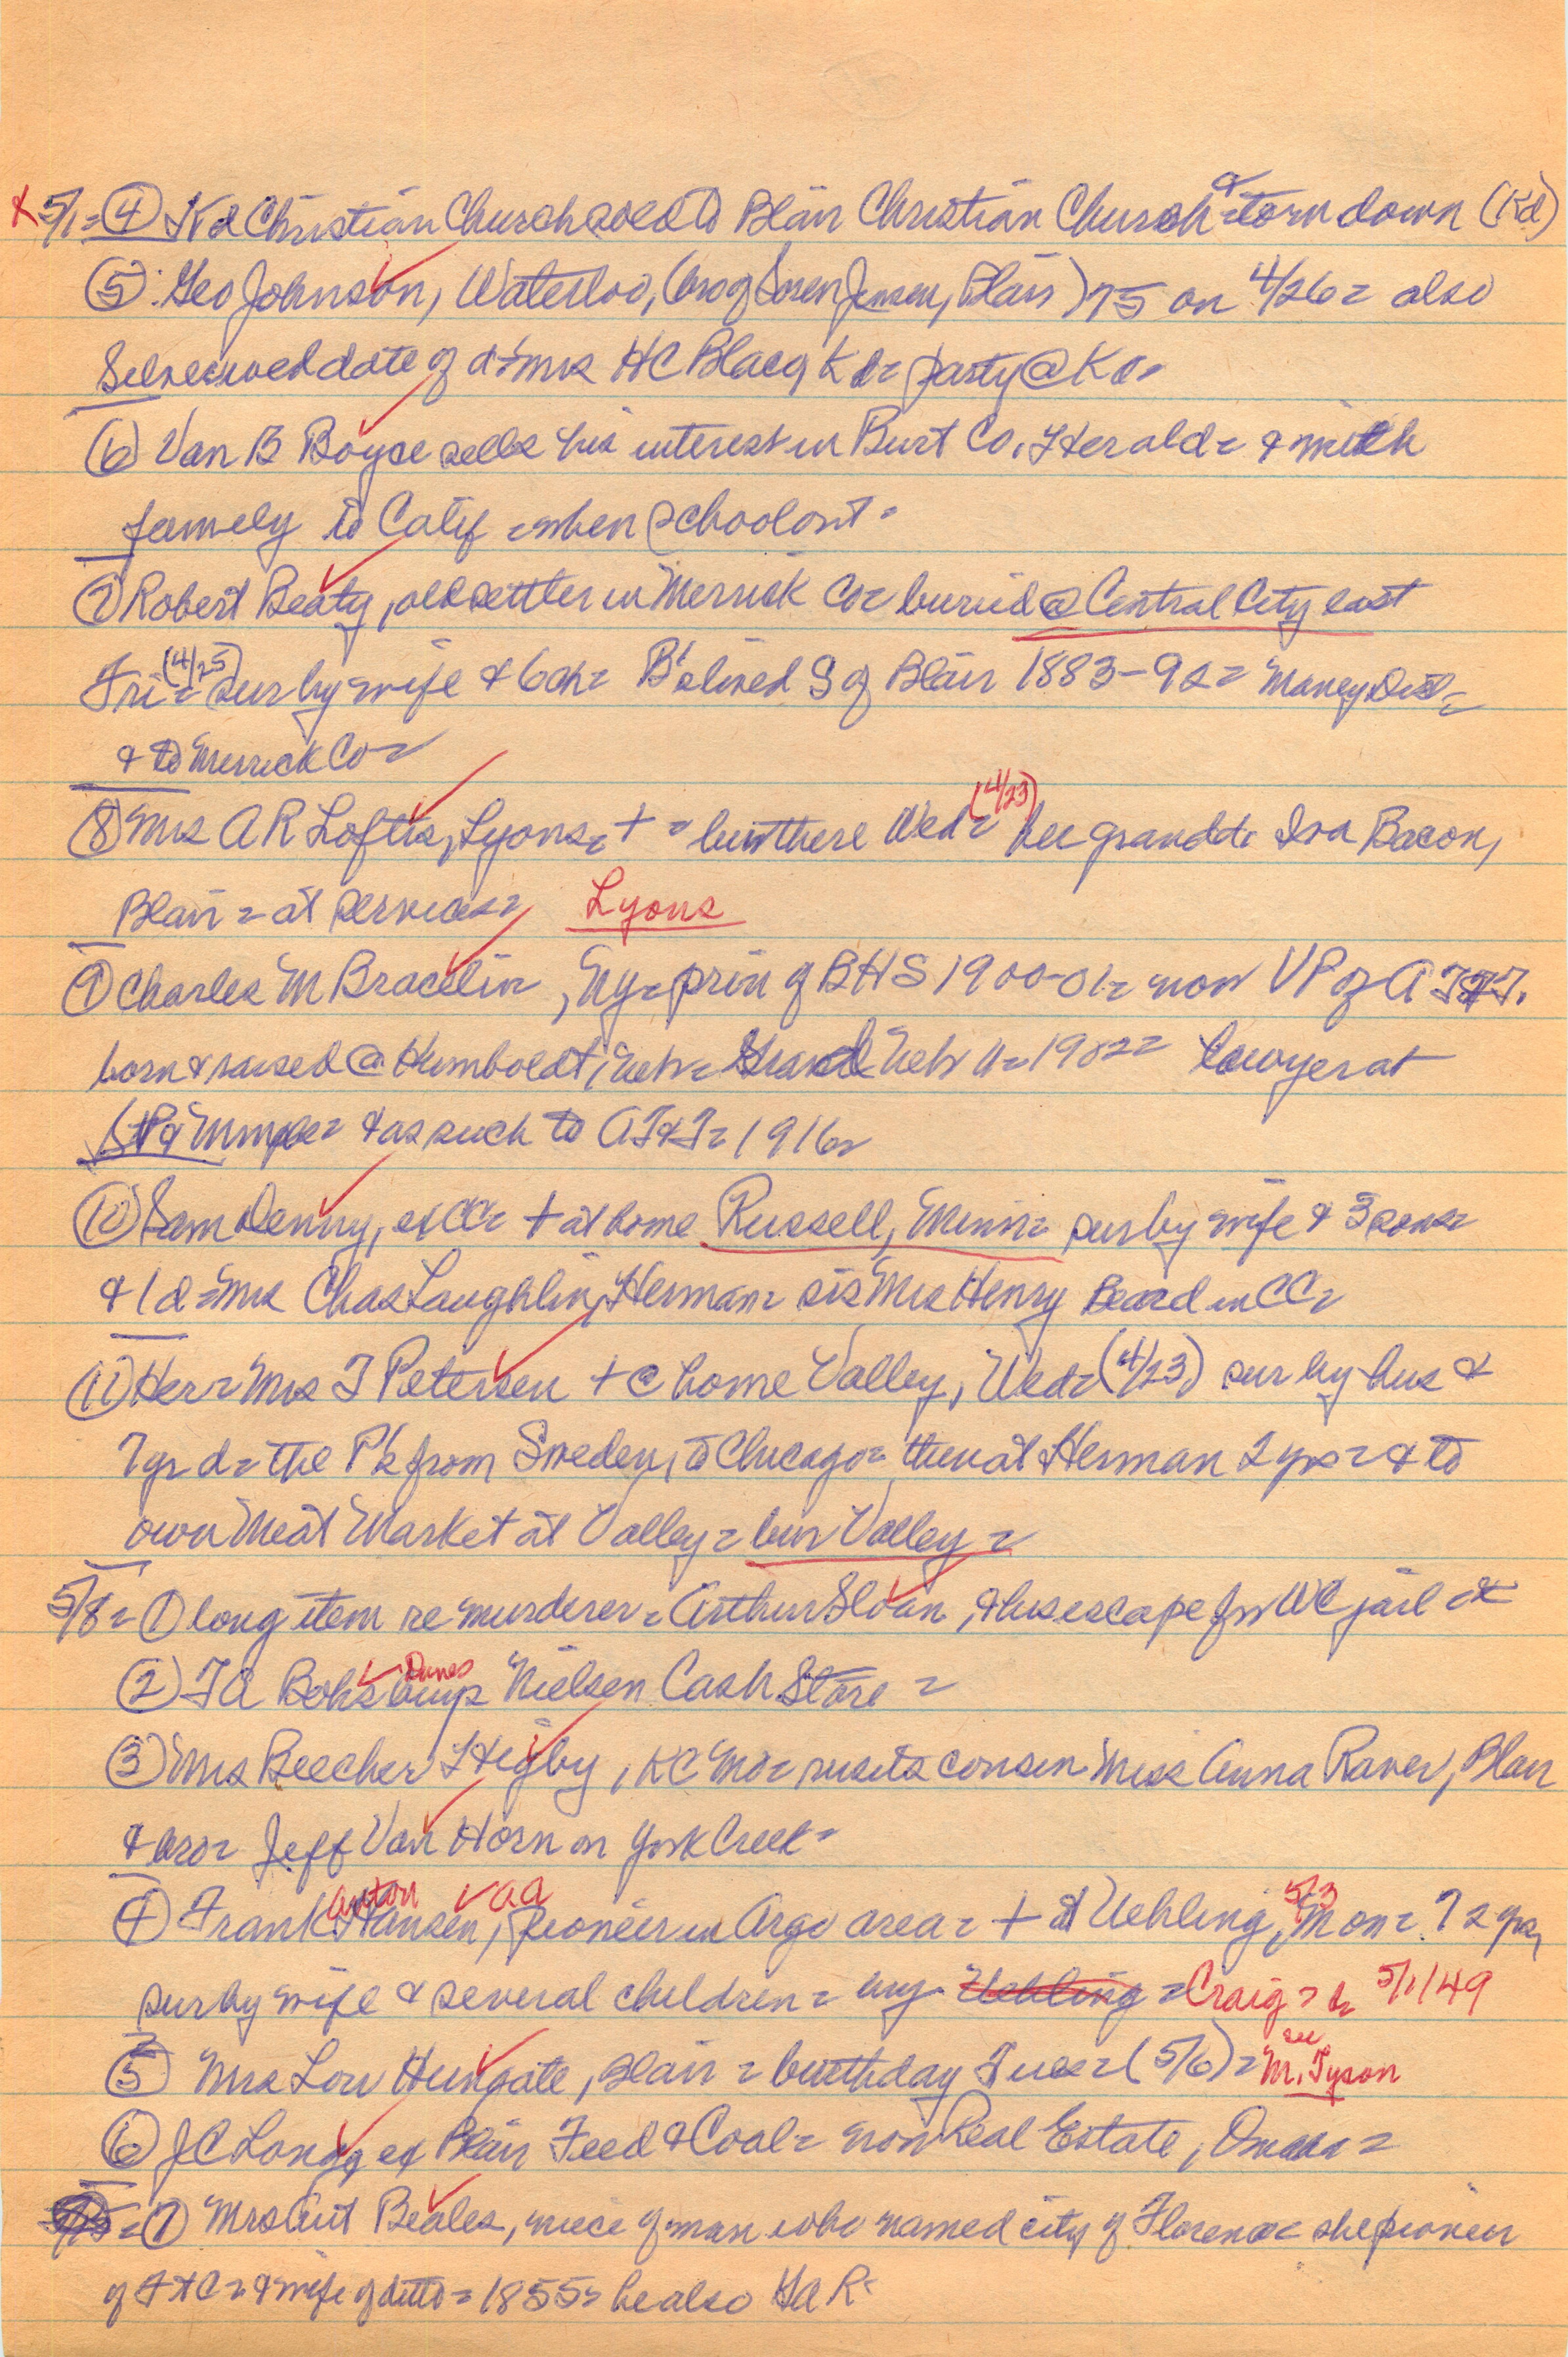 x 5/1 = ④ Kd Christian Church sold to Blair Christian Church = & torn down (Kd)
⑤ Geo Johnson, Waterloo, (bro of Soren Jensen, Blair) 75 on 4/26 = also
date of d = Mrs HC Blaeq Kd = party @ Kd =
⑥ Van B Boyce sells his interest in Burt Co. Herald = & with
family to Calif = when school out =
⑦ Robert Beaty, old settler in Merrick Co = buried @ Central City last
Fri = (4/25) sur by wife & 6 ch = B's lived S of Blair 1883-92 = Maney Dist =
& to Merrick Co =
⑧ Mrs A R Loftis, Lyons = + = bur there Wed = (4/23) her grandd. Iva Bacon,
Blair = at services = Lyons
⑨ Charles M Bracelin, NY = prin of BHS 1900-01 = now VP of AT&T.
born & raised @ Humboldt, Neb = Grand Neb U = 1902 = lawyer at
& as such to AT&T = 1916 =
⑩ Sam Denny, ex CC = + at home Russell, Minn = sur by wife & 3 sons =
& 1 d = Mrs Chas Laughlin, Herman = sis Mrs Henry Beard in CC =
⑪ Her = Mrs T Petersen + @ home Valley, Wed = (4/23) sur by hus &
7 yr d = the P's from Sweden, to Chicago = then at Herman 2 yrs = & to
own Meat Market at Valley = bur Valley =
5/8 = ① long item re murderer = Arthur Sloan, & his escape fr WC jail =
② TA Bohs buys Danes Nielsen Cash Store =
③ Mrs Beecher Higby, KC Mo = visits cousin Miss Anna Raver, Blair
& bro = Jeff Van Horn on York Creek =
④ Frank Anton Hansen, aa pioneer in Argo area = + at Uehling, 5/3 Mon = 72 yrs,
sur by wife & several children = Uehling = Craig = 5/1/49
⑤ Mrs Lou Hungate, Blair = birthday Tues = (5/6) = see M. Tyson
⑥ JC Long, ex Blair Feed & Coal = now Real Estate, Omaha =
= ⑦ Mrs Art Beales, niece of man who named city of Florence = she pioneer
of Ft C = & wife of ditto = 1855 = he also